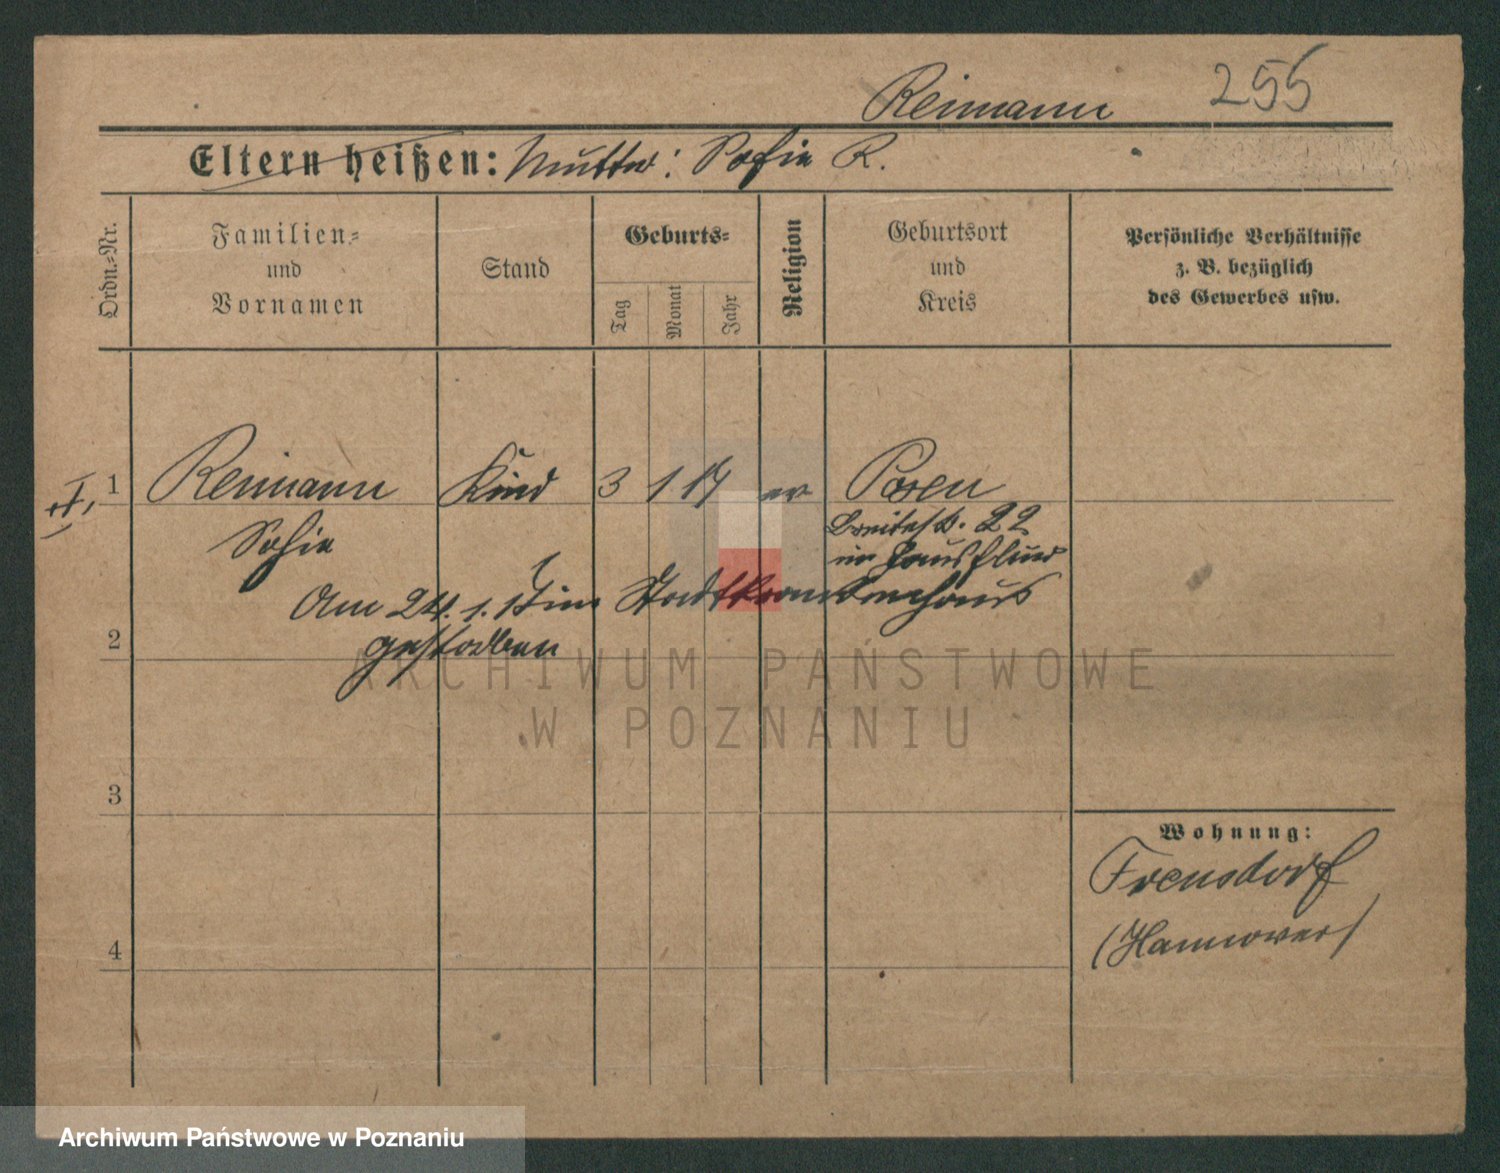 Reimann 255
Eltern heißen: Mutter: Sofie R.
Ordn.-Nr.
Familien-
und
Vornamen
Stand
Geburts-
Tag
Monat
Jahr
Religion
Geburtsort
und
Kreis
Persönliche Verhältnisse
z. B. bezüglich
des Gewerbes usw.
1 Reimann Kind 3 1 17 ev Posen
Sofie
Breitestr. 22
im Hausflur
Am 24. 1. 17 im Stadtkrankenhaus
gestorben
2
3
4
Wohnung:
Frensdorf
(Hannover)
ARCHIWUM PAŃSTWOWE
W POZNANIU
Archiwum Państwowe w Poznaniu